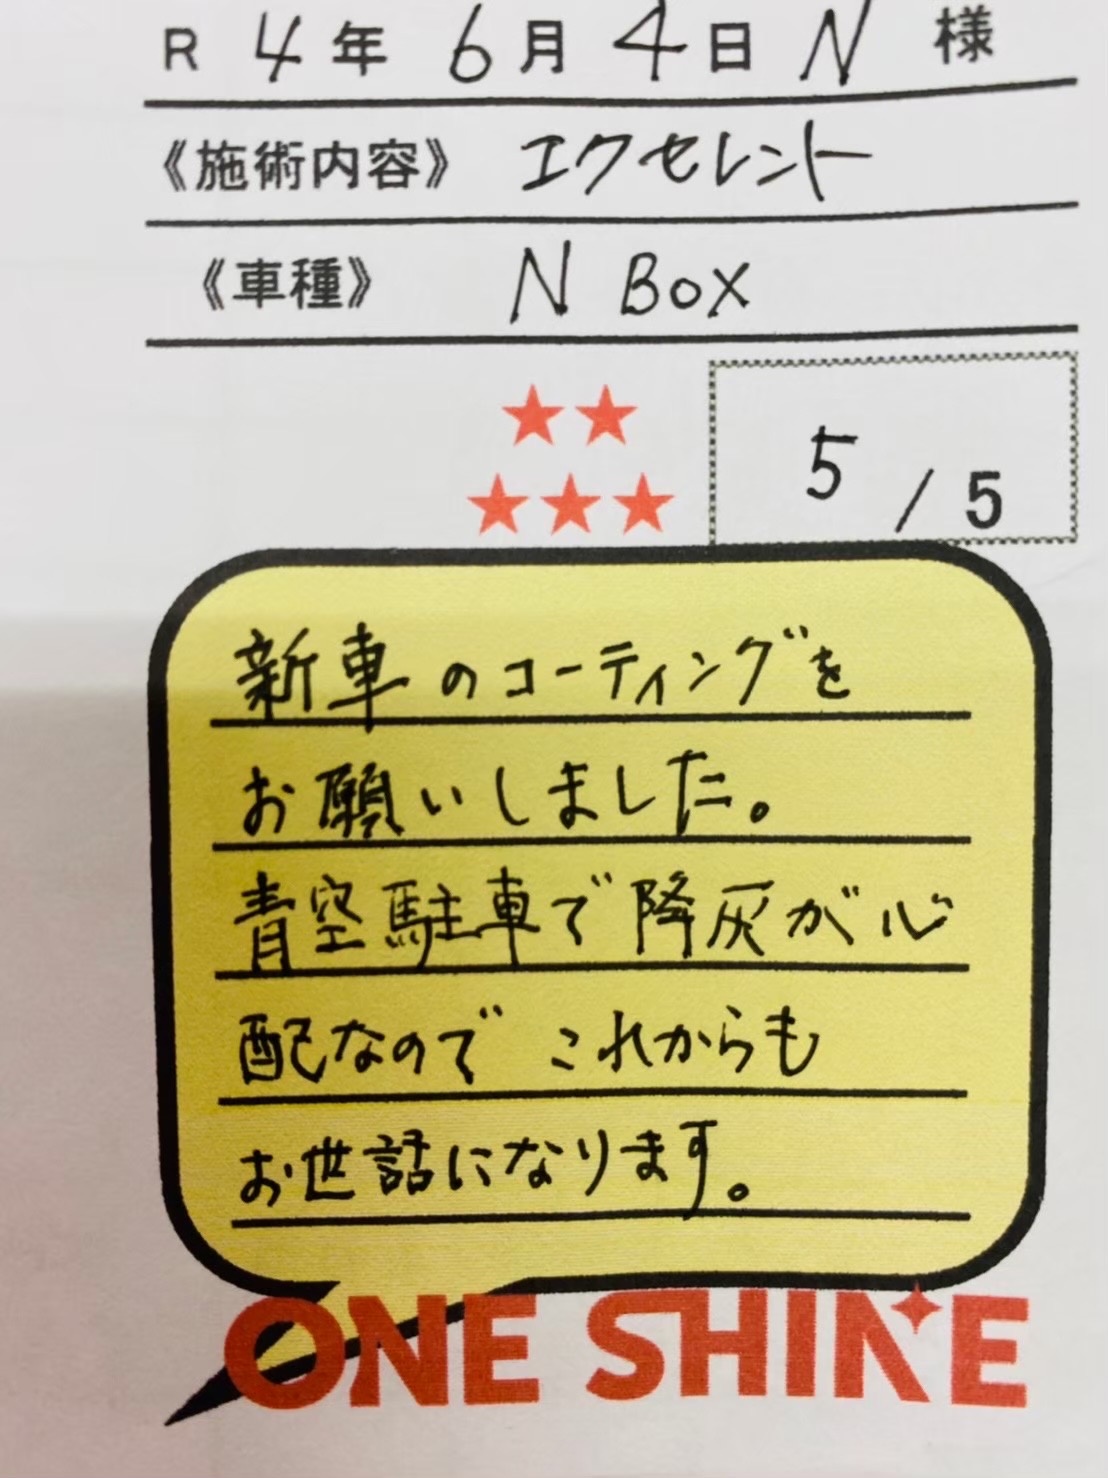 R 4年 6月 4日 N 様
《施術内容》 エクセレント
《車種》 N Box
5 / 5
新車のコーティングを
お願いしました。
青空駐車で降灰が心
配なので これからも
お世話になります。
ONE SHINE